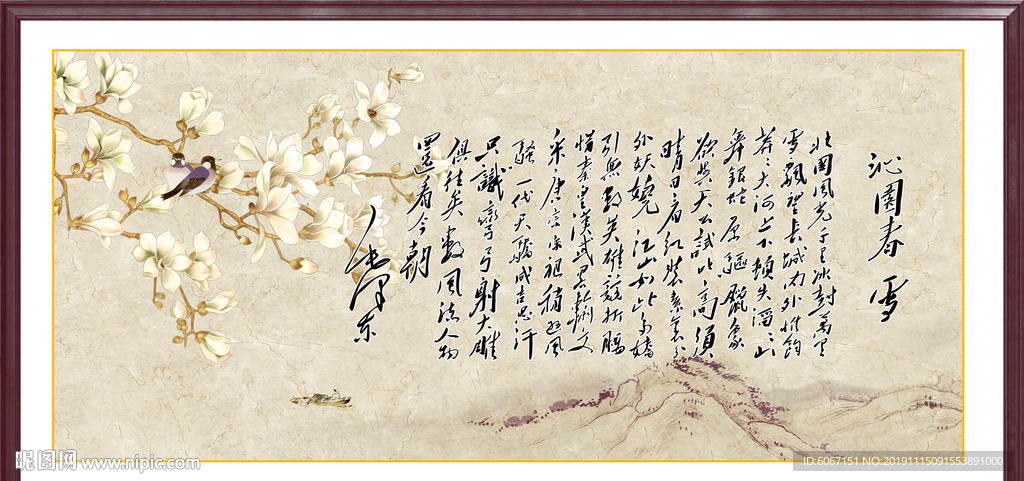 沁园春 雪
北国风光千里冰封万里
雪飘望长城内外惟余
莽莽大河上下顿失滔滔山
舞银蛇原驱腊象
欲与天公试比高须
晴日看红装素裹分
外妖娆江山如此多娇
引无数英雄竞折腰
惜秦皇汉武略输文
采唐宗宋祖稍逊风
骚一代天骄成吉思汗
只识弯弓射大雕
俱往矣数风流人物
还看今朝
毛泽东
昵图网 www.nipic.com
ID:6067151 NO:20191115091553891000